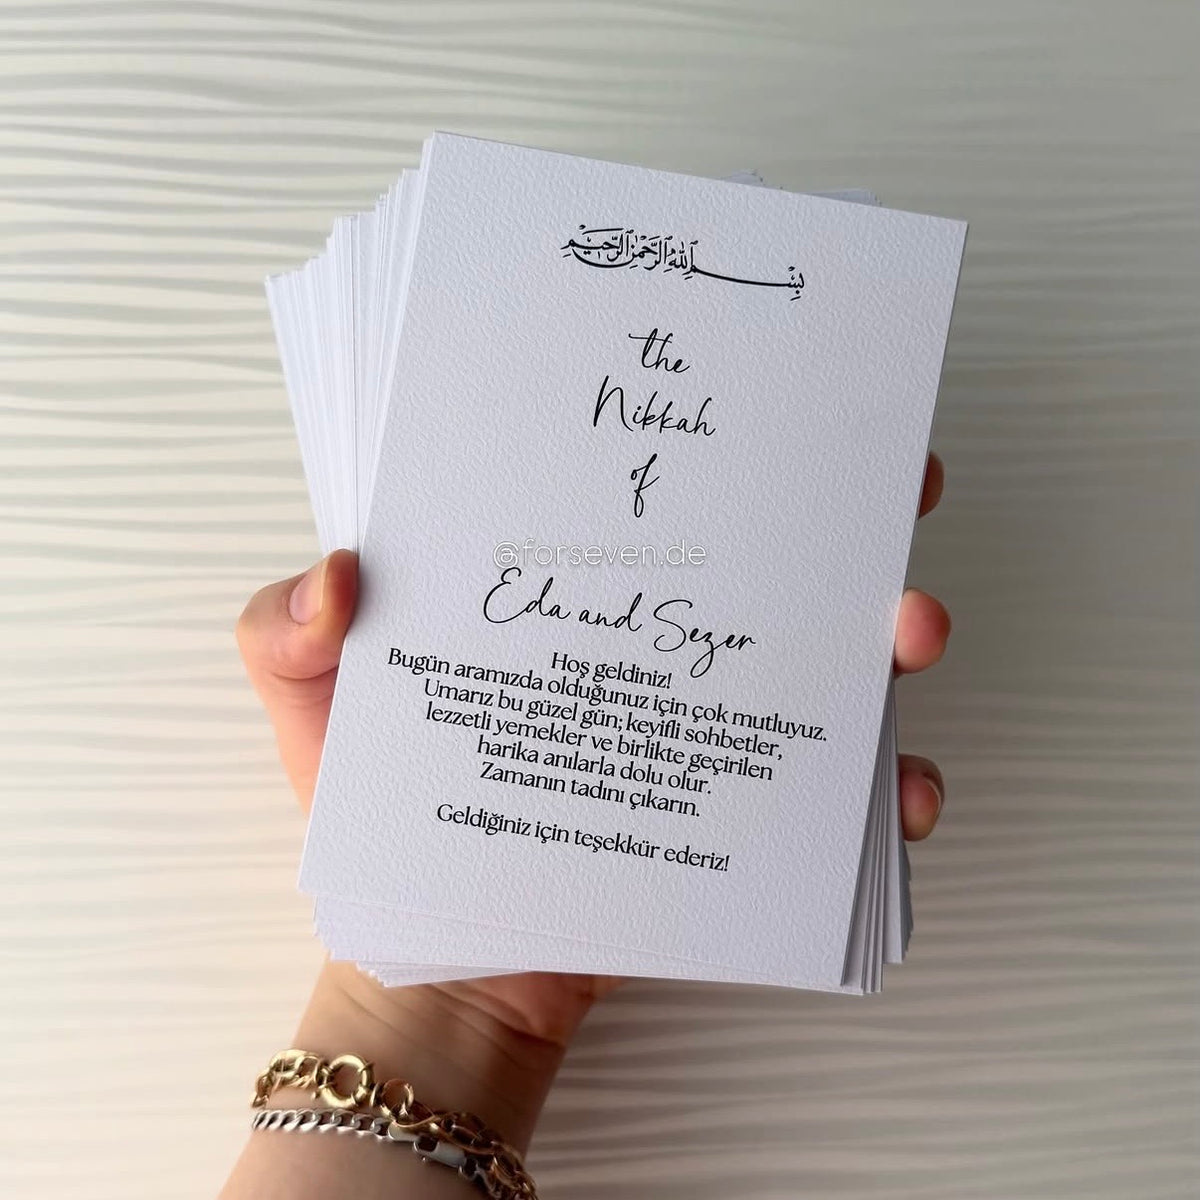 بِسْمِ اللهِ الرَّحْمٰنِ الرَّحِيْمِ
the
Nikkah
of
@forseven.de
Eda and Sezer
Hoş geldiniz!
Bugün aramızda olduğunuz için çok mutluyuz.
Umarız bu güzel gün; keyifli sohbetler,
lezzetli yemekler ve birlikte geçirilen
harika anılarla dolu olur.
Zamanın tadını çıkarın.
Geldiğiniz için teşekkür ederiz!